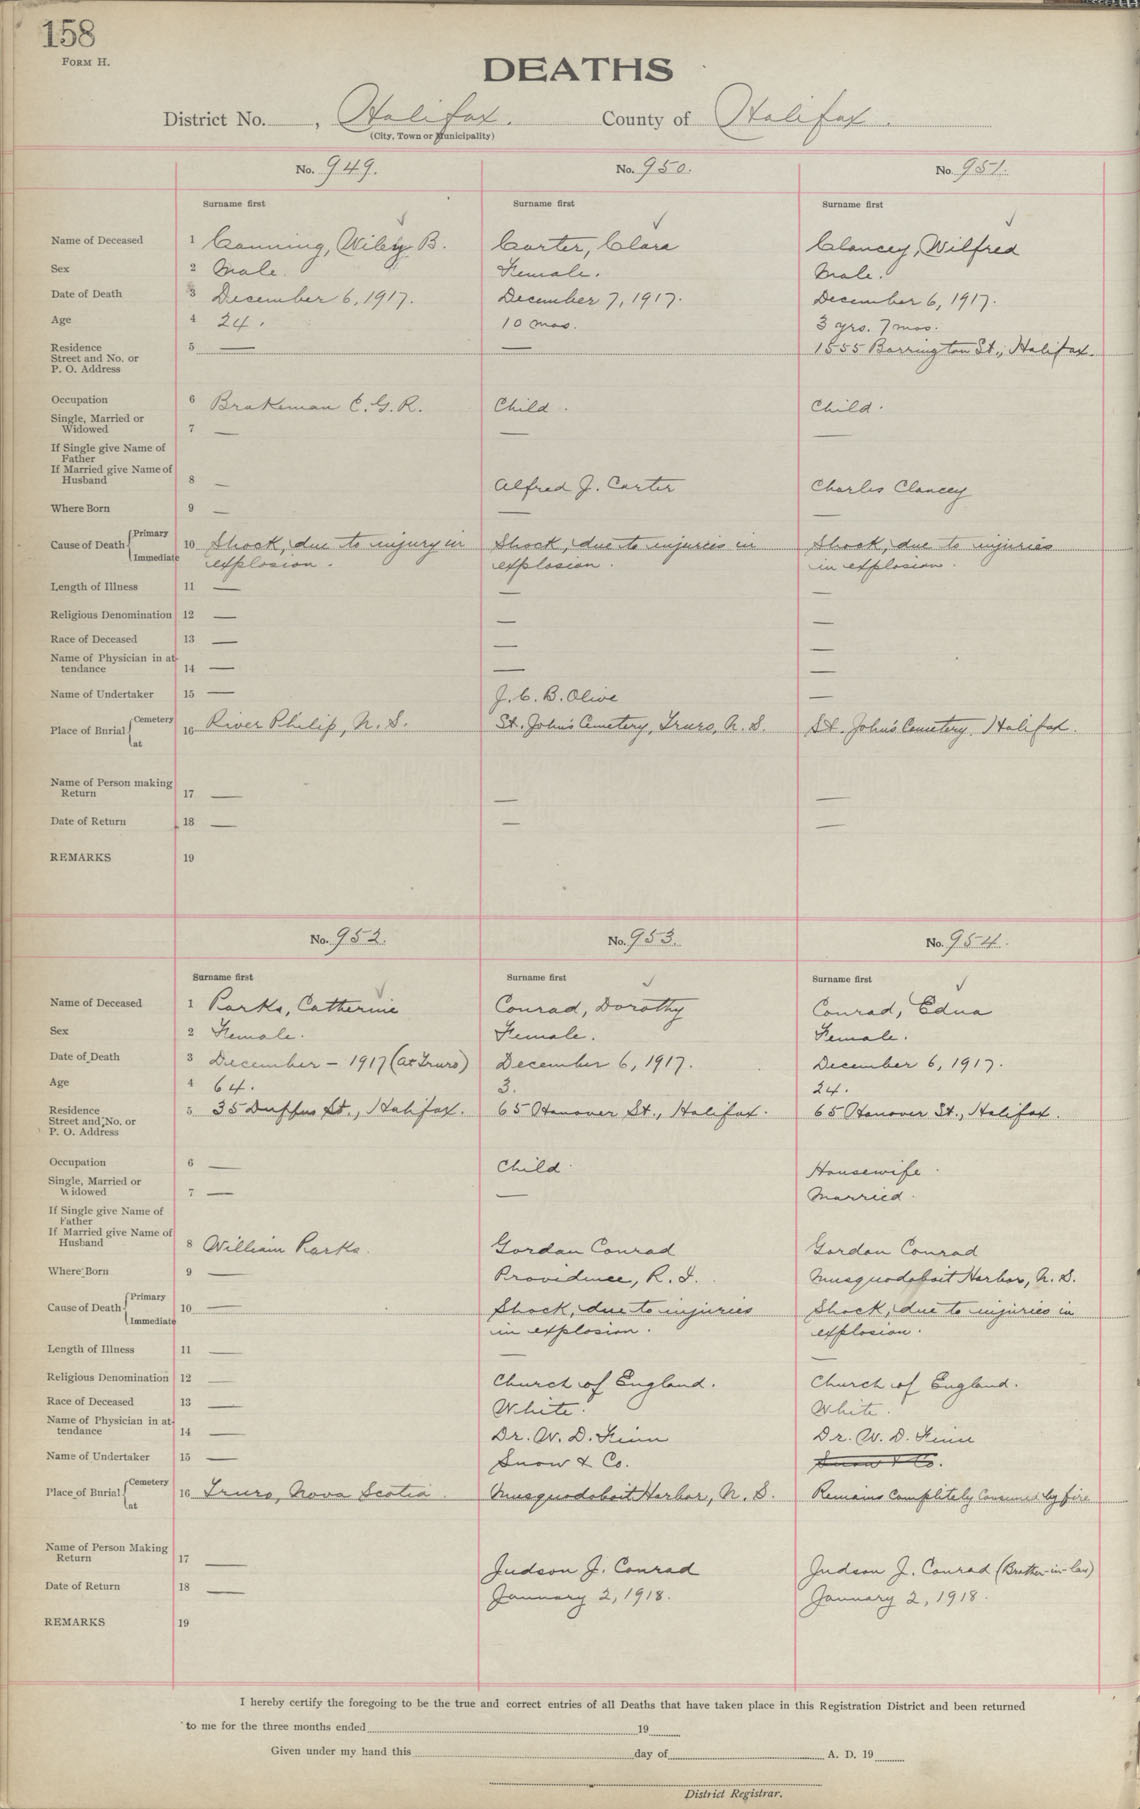 158
FORM H.
DEATHS
District No. , Halifax. County of Halifax.
(City, Town or Municipality)
No. 949. No. 950. No. 951.
Surname first Surname first Surname first
Name of Deceased 1 Canning, Wiley B. Carter, Clara Clancey, Wilfred
Sex 2 Male. Female. Male.
Date of Death 3 December 6, 1917. December 7, 1917. December 6, 1917.
Age 4 24. 10 mos. 3 yrs. 7 mos.
Residence 5 — — 1555 Barrington St., Halifax.
Street and No. or
P. O. Address
Occupation 6 Brakeman C.G.R. Child. Child.
Single, Married or
Widowed 7 — — —
If Single give Name of
Father
If Married give Name of
Husband 8 — Alfred J. Carter Charles Clancey
Where Born 9 — — —
Cause of Death { Primary
Immediate 10 Shock, due to injury in Shock, due to injuries in Shock, due to injuries
explosion. explosion. in explosion.
Length of Illness 11 — — —
Religious Denomination 12 — — —
Race of Deceased 13 — — —
Name of Physician in at-
tendance 14 — — —
Name of Undertaker 15 — J. C. B. Olive —
Place of Burial { Cemetery
at 16 River Philip, N. S. St. John's Cemetery, Truro, N. S. St. John's Cemetery, Halifax.
Name of Person making
Return 17 — — —
Date of Return 18 — — —
REMARKS 19
No. 952. No. 953. No. 954.
Surname first Surname first Surname first
Name of Deceased 1 Parks, Catherine Conrad, Dorothy Conrad, Edna
Sex 2 Female. Female. Female.
Date of Death 3 December – 1917 (at Truro) December 6, 1917. December 6, 1917.
Age 4 64. 3. 24.
Residence 5 35 Duffus St., Halifax. 65 Hanover St., Halifax. 65 Hanover St., Halifax.
Street and No. or
P. O. Address
Occupation 6 — Child. Housewife.
Single, Married or
Widowed 7 — — Married.
If Single give Name of
Father
If Married give Name of
Husband 8 William Parks. Gordon Conrad Gordon Conrad
Where Born 9 — Providence, R. I. Musquodoboit Harbor, N. S.
Cause of Death { Primary
Immediate 10 — Shock, due to injuries Shock, due to injuries in
in explosion. explosion.
Length of Illness 11 — — —
Religious Denomination 12 — Church of England. Church of England.
Race of Deceased 13 — White. White.
Name of Physician in at-
tendance 14 — Dr. W. D. Finn Dr. W. D. Finn
Name of Undertaker 15 — Snow & Co. Snow & Co.
Place of Burial { Cemetery
at 16 Truro, Nova Scotia. Musquodoboit Harbor, N. S. Remains completely consumed by fire
Name of Person Making
Return 17 — Judson J. Conrad Judson J. Conrad (Brother-in-law)
Date of Return 18 — January 2, 1918. January 2, 1918.
REMARKS 19
I hereby certify the foregoing to be the true and correct entries of all Deaths that have taken place in this Registration District and been returned
to me for the three months ended 19
Given under my hand this day of A. D. 19
District Registrar.